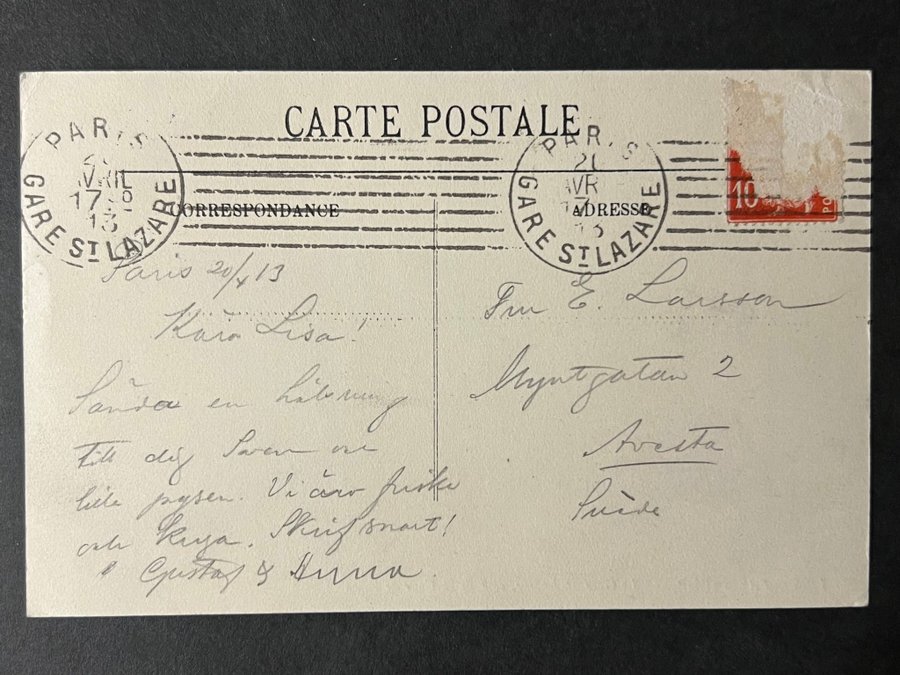 CARTE POSTALE
PARIS
21
AVRIL
17 30
13
GARE ST LAZARE
PARIS
21
AVR
13
GARE ST LAZARE
10
CORRESPONDANCE
ADRESSE
Paris 20/4 13
Kära Lisa!
Sända en hälsning
till dig Sven och
lille pysen. Vi äro friska
och krya. Skrif snart!
Gustaf & Anna.
Fru E. Larsson
Myntgatan 2
Avesta
Suède